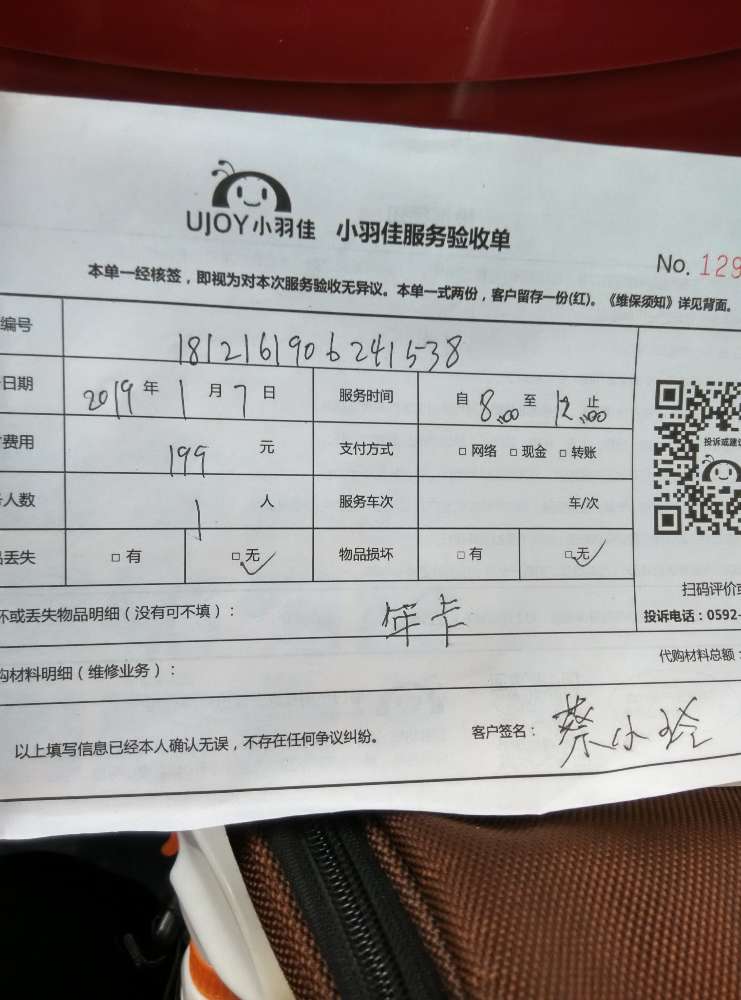 UJOY小羽佳 小羽佳服务验收单
No. 129
本单一经核签，即视为对本次服务验收无异议。本单一式两份，客户留存一份(红)。《维保须知》详见背面。
编号 1812161906241538
日期 2019 年 1 月 7 日 服务时间 自 8:00 至 12:00 止
费用 199 元 支付方式 □ 网络 □ 现金 □ 转账
人数 1 人 服务车次 车/次
丢失 □ 有 □ 无 物品损坏 □ 有 □ 无
投诉或建议
扫码评价或
投诉电话：0592-
坏或丢失物品明细（没有可不填）： 年卡
购材料明细（维修业务）： 代购材料总额：
以上填写信息已经本人确认无误，不存在任何争议纠纷。 客户签名： 蔡小玲